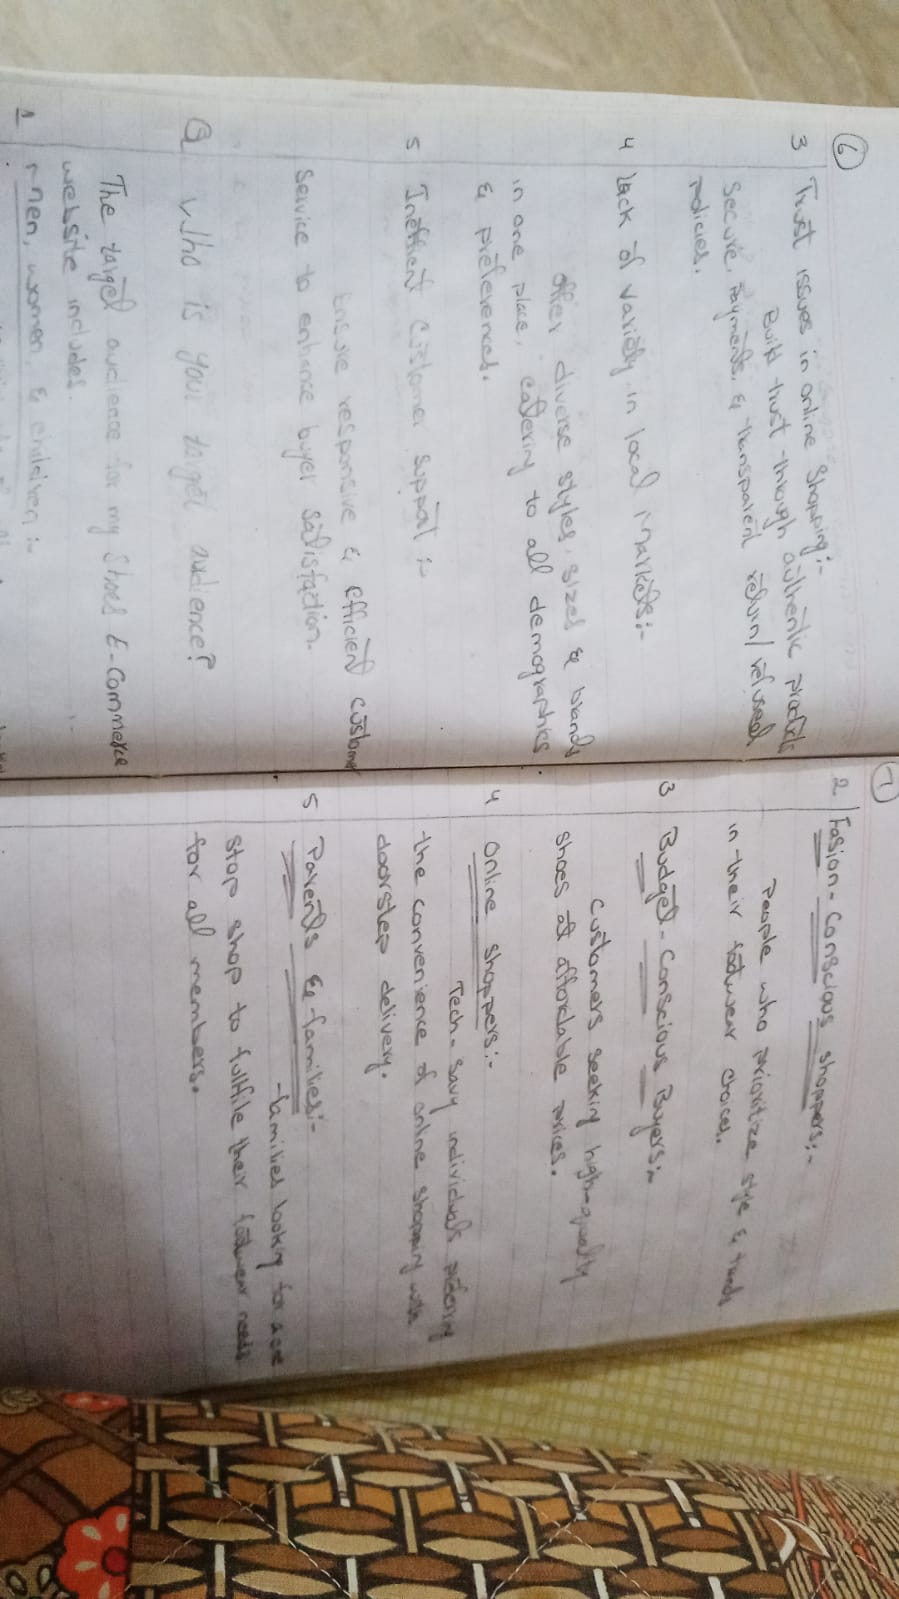 6
3 Trust issues in online shopping:-
Build trust through authentic products
Secure. Payments. & transparent return/refused
policies.
4 Lack of variety in local markets:-
offer diverse styles, sizes & brands
in one place, catering to all demographics
& preferences.
5 Ineffient Customer support :-
Ensure responsive & efficient customer
Service to enhance buyer satisfaction.
Q Who is your target audience?
The target audience for my Shoes E-Commerce
website includes.
1 Men, women, & children :-
7
2 Fasion-Conscious shoppers:-
People who prioritize style & trends
in their footwear choices.
3 Budget-Conscious Buyers:-
Customers seeking high-quality
shoes at affordable prices.
4 Online shoppers:-
Tech-Savy individuals prefering
the convenience of online shopping with
doorstep delivery.
5 Parents & families:-
families looking for a one
stop shop to fulfile their footwear needs
for all members.